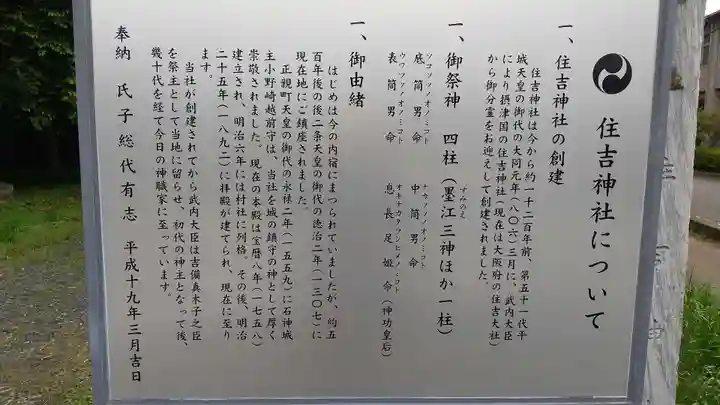 住吉神社について
一、住吉神社の創建
住吉神社は今から約一千二百年前、第五十一代平
城天皇の御代の大同元年(八〇六)三月に、武内大臣
により摂津国の住吉神社(現在は大阪府の住吉大社)
から御分霊をお迎えして創建されました。
一、御祭神 四柱(墨江三神ほか一柱)
すみのえ
ソコツツノオノミコト ナカツツノオノミコト
底筒男命 中筒男命
ウワツツノオノミコト オキナガタラシヒメノミコト
表筒男命 息長足姫命(神功皇后)
一、御由緒
はじめは今の内宿にまつられていましたが、約五
百年後の後二条天皇の御代の徳治二年(一三〇七)に
現在地にご鎮座されました。
正親町天皇の御代の永禄二年(一五五九)に石神城
主小野崎越前守は、当社を城の鎮守の神として厚く
崇敬されました。現在の本殿は宝暦八年(一七五八)
建立され、明治六年には村社に列格。その後、明治
二十五年(一八九二)に拝殿が建てられ、現在に至り
ます。
当社が創建されてから武内大臣は吉備真木子之臣
を祭主として当地に留らせ、初代の神主となって後、
幾十代を経て今日の神職家に至っています。
奉納 氏子総代有志 平成十九年三月吉日